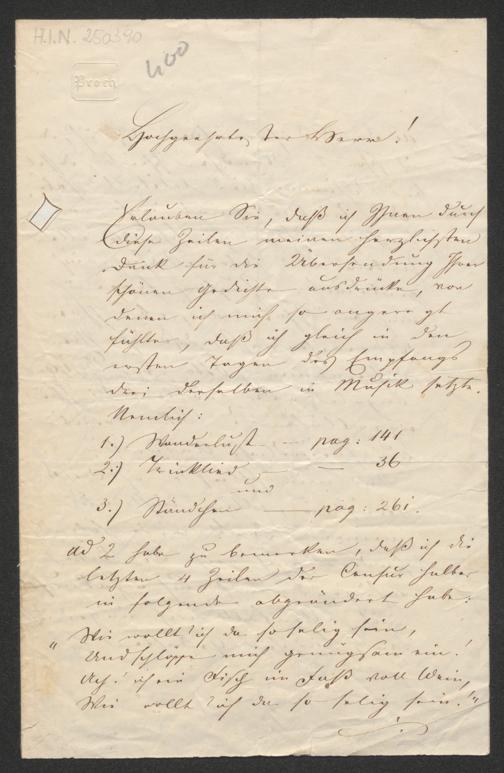 H.I.N. 250390
400
Proch
Hochgeehrtester Herr!
Erlauben Sie, daß ich Ihnen durch
diese Zeilen meinen herzlichsten
Dank für die Übersendung Ihrer
schönen Gedichte ausdrücke, von
denen ich mich so angeregt
fühlte, daß ich gleich in den
ersten Tagen des Empfangs
drei derselben in Musik setzte.
Nemlich:
1.) Wanderlust — pag: 141
2.) Trinklied — — 36
und
3.) Ständchen — pag: 261.
ad 2 habe zu bemerken, daß ich die
letzten 4 Zeilen der Censur halber
in folgende abgeändert habe:
"Wie wollt' ich da so selig sein,
Und schlöffe mich genugsam ein!
Ach! ich ein Fisch im Faß voll Wein,
Wie wollt' ich da so selig sein!"